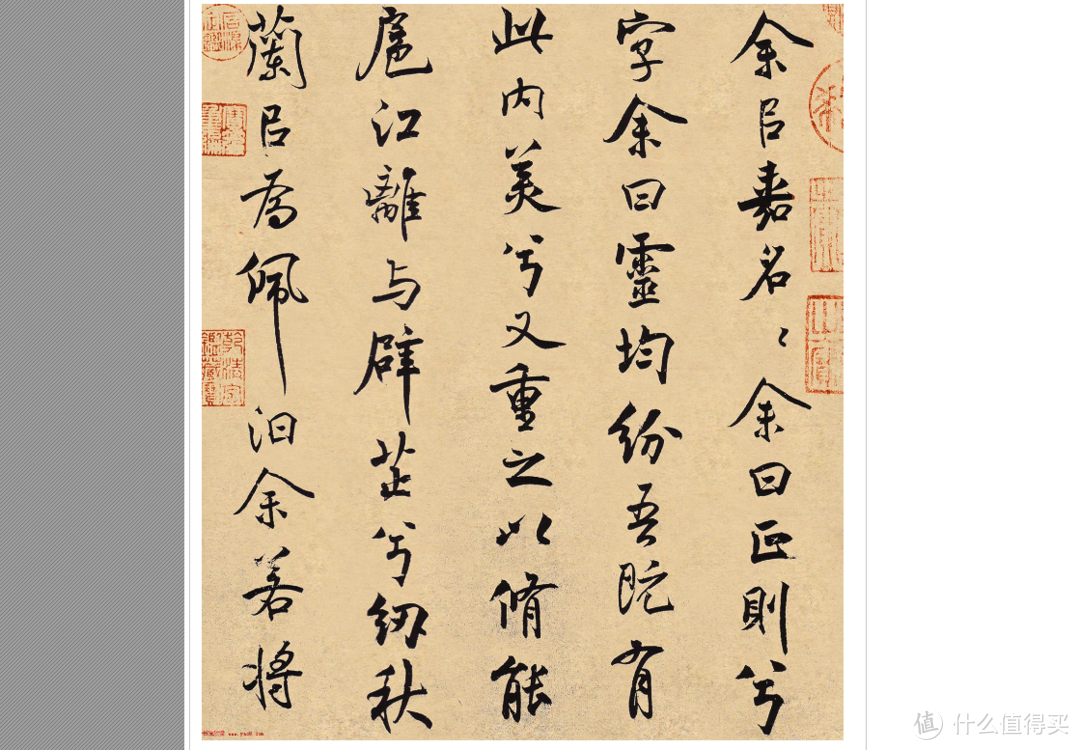 余㠯嘉名〻余曰正則兮
字余曰靈均紛吾既有
此内美兮又重之以脩能
扈江離与辟芷兮紉秋
蘭㠯為佩汩余若将
值 什么值得买